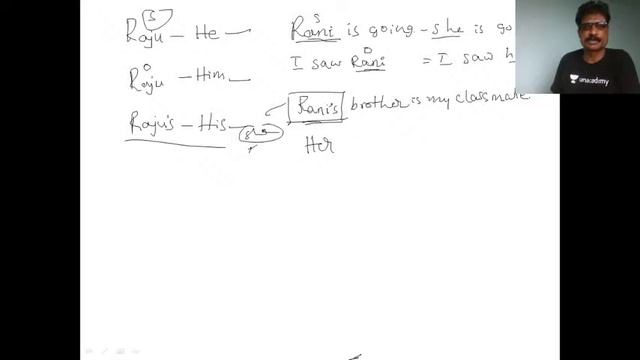 S
Raju - He -
S
Rani is going - she is go
O
Raju - Him -
O
I saw Rani = I saw h
Raju's - His -
Rani's brother is my classmate
Her
unacademy